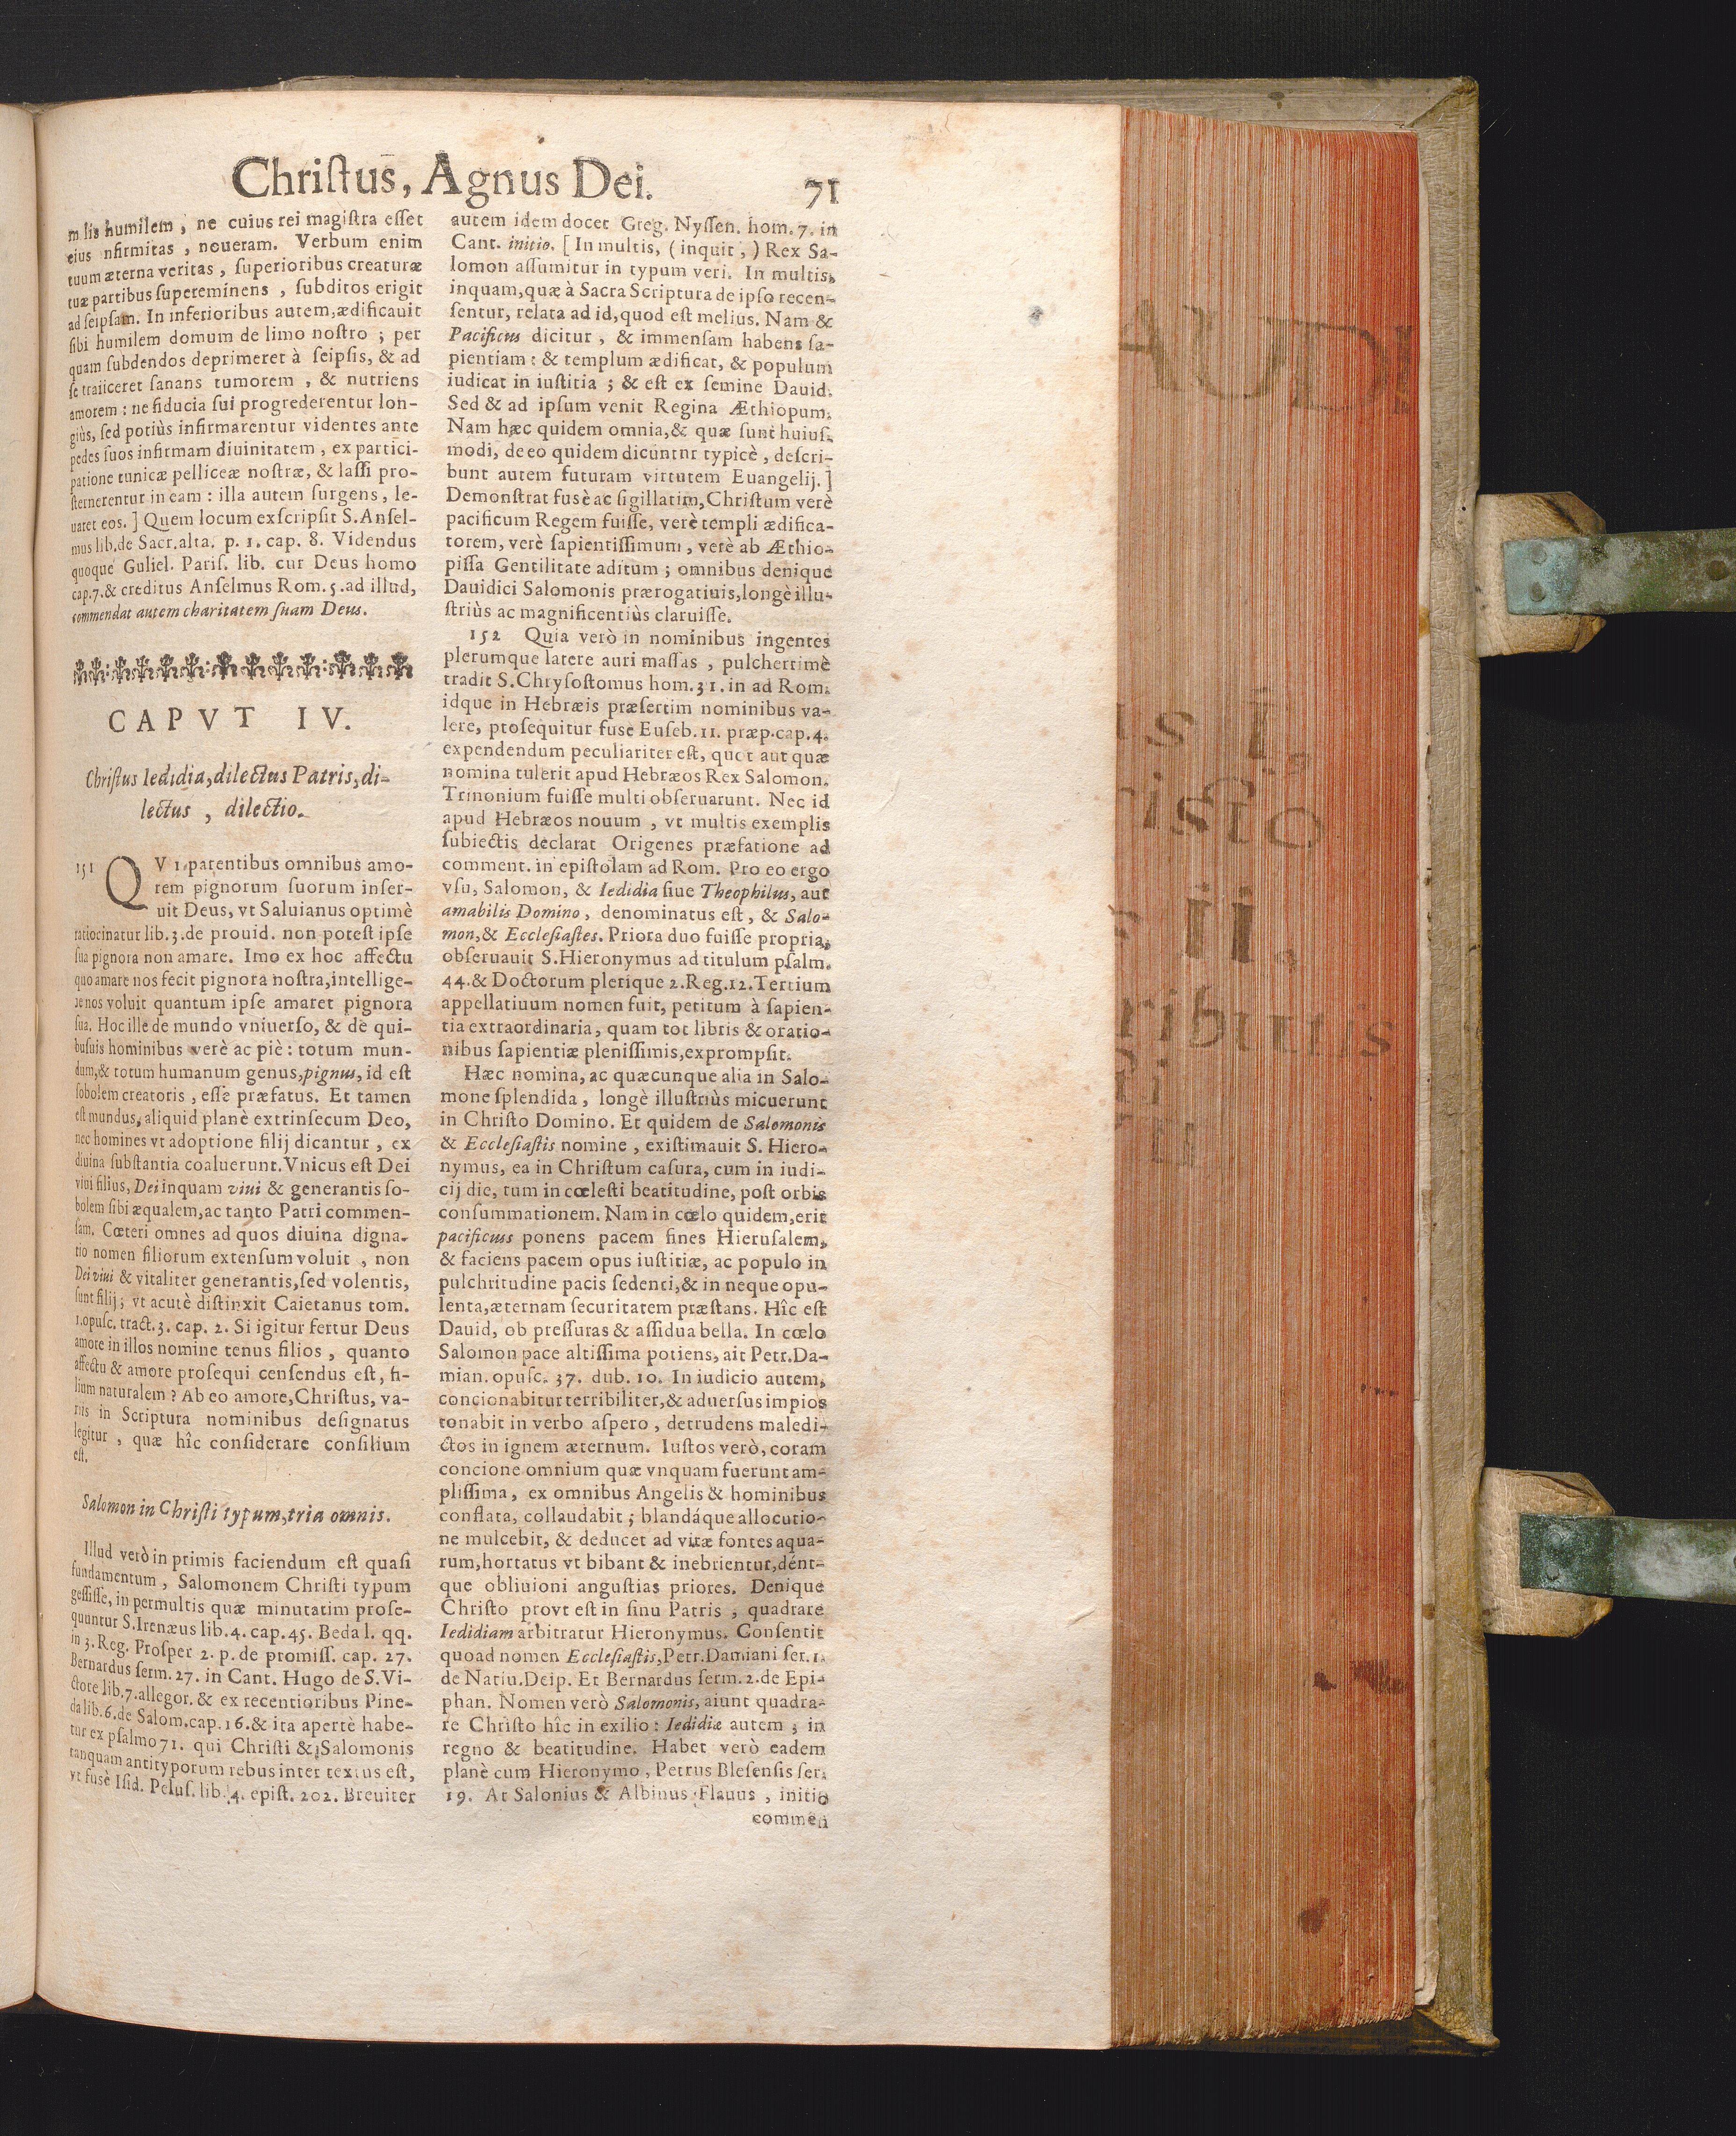 Christus, Agnus Dei. 71
m lis humilem, ne cuius rei magistra esset
eius nfirmitas, noueram. Verbum enim
tuum æterna veritas, superioribus creaturæ
tuæ partibus supereminens, subditos erigit
ad seipsam. In inferioribus autem, ædificauit
sibi humilem domum de limo nostro; per
quam subdendos deprimeret à seipsis, & ad
se traiiceret sanans tumorem, & nutriens
amorem: ne fiducia sui progrederentur lon-
giùs, sed potiùs infirmarentur videntes ante
pedes suos infirmam diuinitatem, ex partici-
patione tunicæ pelliceæ nostræ, & lassi pro-
sternerentur in eam: illa autem surgens, le-
uaret eos. ] Quem locum exscripsit S. Ansel-
mus lib. de Sacr. alta. p. 1. cap. 8. Videndus
quoque Guliel. Paris. lib. cur Deus homo
cap. 7. & creditus Anselmus Rom. 5. ad illud,
commendat autem charitatem suam Deus.
CAPVT IV.
Christus Iedidia, dilectus Patris, di-
lectus, dilectio.
151 QVI parentibus omnibus amo-
rem pignorum suorum inser-
uit Deus, vt Saluianus optimè
ratiocinatur lib. 3. de prouid. non potest ipse
sua pignora non amare. Imo ex hoc affectu
quo amare nos fecit pignora nostra, intellige-
re nos voluit quantum ipse amaret pignora
sua. Hoc ille de mundo vniuerso, & de qui-
busuis hominibus verè ac piè: totum mun-
dum, & totum humanum genus, pignus, id est
sobolem creatoris, esse præfatus. Et tamen
est mundus, aliquid planè extrinsecum Deo,
nec homines vt adoptione filij dicantur, ex
diuina substantia coaluerunt. Vnicus est Dei
viui filius, Dei inquam viui & generantis so-
bolem sibi æqualem, ac tanto Patri commen-
sam. Cœteri omnes ad quos diuina digna-
tio nomen filiorum extensum voluit, non
Dei viui & vitaliter generantis, sed volentis,
sunt filij; vt acutè distinxit Caietanus tom.
1. opusc. tract. 3. cap. 2. Si igitur fertur Deus
amore in illos nomine tenus filios, quanto
affectu & amore prosequi censendus est, fi-
lium naturalem? Ab eo amore, Christus, va-
riis in Scriptura nominibus designatus
legitur, quæ hîc considerare consilium
est.
Salomon in Christi typum, tria omnis.
Illud verò in primis faciendum est quasi
fundamentum, Salomonem Christi typum
gessisse, in permultis quæ minutatim prose-
quuntur S. Irenæus lib. 4. cap. 45. Beda l. qq.
in 3. Reg. Prosper 2. p. de promiss. cap. 27.
Bernardus serm. 27. in Cant. Hugo de S. Vi-
ctore lib. 7. allegor. & ex recentioribus Pine-
da lib. 6. de Salom. cap. 16. & ita apertè habe-
tur ex psalmo 71. qui Christi & Salomonis
tanquam antityporum rebus inter textus est,
vt fusè Isid. Pelus. lib. 4. epist. 202. Breuiter
autem idem docet Greg. Nyssen. hom. 7. in
Cant. initio. [ In multis, ( inquit, ) Rex Sa-
lomon assumitur in typum veri. In multis,
inquam, quæ à Sacra Scriptura de ipso recen-
sentur, relata ad id, quod est melius. Nam &
Pacificus dicitur, & immensam habens sa-
pientiam: & templum ædificat, & populum
iudicat in iustitia; & est ex semine Dauid.
Sed & ad ipsum venit Regina Æthiopum.
Nam hæc quidem omnia, & quæ sunt huius-
modi, de eo quidem dicuntnr typicè, descri-
bunt autem futuram virtutem Euangelij. ]
Demonstrat fusè ac sigillatim, Christum verè
pacificum Regem fuisse, verè templi ædifica-
torem, verè sapientissimum, verè ab Æthio-
pissa Gentilitate aditum; omnibus denique
Dauidici Salomonis prærogatiuis, longè illu-
striùs ac magnificentiùs claruisse.
152 Quia verò in nominibus ingentes
plerumque latere auri massas, pulcherrimè
tradit S. Chrysostomus hom. 31. in ad Rom.
idque in Hebræis præsertim nominibus va-
lere, prosequitur fusè Euseb. 11. præp. cap. 4.
expendendum peculiariter est, quot aut quæ
nomina tulerit apud Hebræos Rex Salomon.
Trinonium fuisse multi obseruarunt. Nec id
apud Hebræos nouum, vt multis exemplis
subiectis declarat Origenes præfatione ad
comment. in epistolam ad Rom. Pro eo ergo
vsu, Salomon, & Iedidia siue Theophilus, aut
amabilis Domino, denominatus est, & Salo-
mon, & Ecclesiastes. Priora duo fuisse propria,
obseruauit S. Hieronymus ad titulum psalm.
44. & Doctorum plerique 2. Reg. 12. Tertium
appellatiuum nomen fuit, petitum à sapien-
tia extraordinaria, quam tot libris & oratio-
nibus sapientiæ plenissimis, exprompsit.
Hæc nomina, ac quæcunque alia in Salo-
mone splendida, longè illustriùs micuerunt
in Christo Domino. Et quidem de Salomonis
& Ecclesiastis nomine, existimauit S. Hiero-
nymus, ea in Christum casura, cum in iudi-
cij die, tum in cœlesti beatitudine, post orbis
consummationem. Nam in cœlo quidem, erit
pacificus ponens pacem fines Hierusalem,
& faciens pacem opus iustitiæ, ac populo in
pulchritudine pacis sedenti, & in neque opu-
lenta, æternam securitatem præstans. Hîc est
Dauid, ob pressuras & assidua bella. In cœlo
Salomon pace altissima potiens, ait Petr. Da-
mian. opusc. 37. dub. 10. In iudicio autem,
concionabitur terribiliter, & aduersus impios
tonabit in verbo aspero, detrudens maledi-
ctos in ignem æternum. Iustos verò, coram
concione omnium quæ vnquam fuerunt am-
plissima, ex omnibus Angelis & hominibus
conflata, collaudabit; blandáque allocutio-
ne mulcebit, & deducet ad vitæ fontes aqua-
rum, hortatus vt bibant & inebrientur, dént-
que obliuioni angustias priores. Denique
Christo provt est in sinu Patris, quadrare
Iedidiam arbitratur Hieronymus. Consentit
quoad nomen Ecclesiastis, Petr. Damiani ser. 1.
de Natiu. Deip. Et Bernardus serm. 2. de Epi-
phan. Nomen verò Salomonis, aiunt quadra-
re Christo hîc in exilio: Iedidiæ autem, in
regno & beatitudine. Habet verò eadem
planè cum Hieronymo, Petrus Blesensis ser.
19. At Salonius & Albinus Flauus, initio
commen
AUD
us I.
risto
II.
ributis